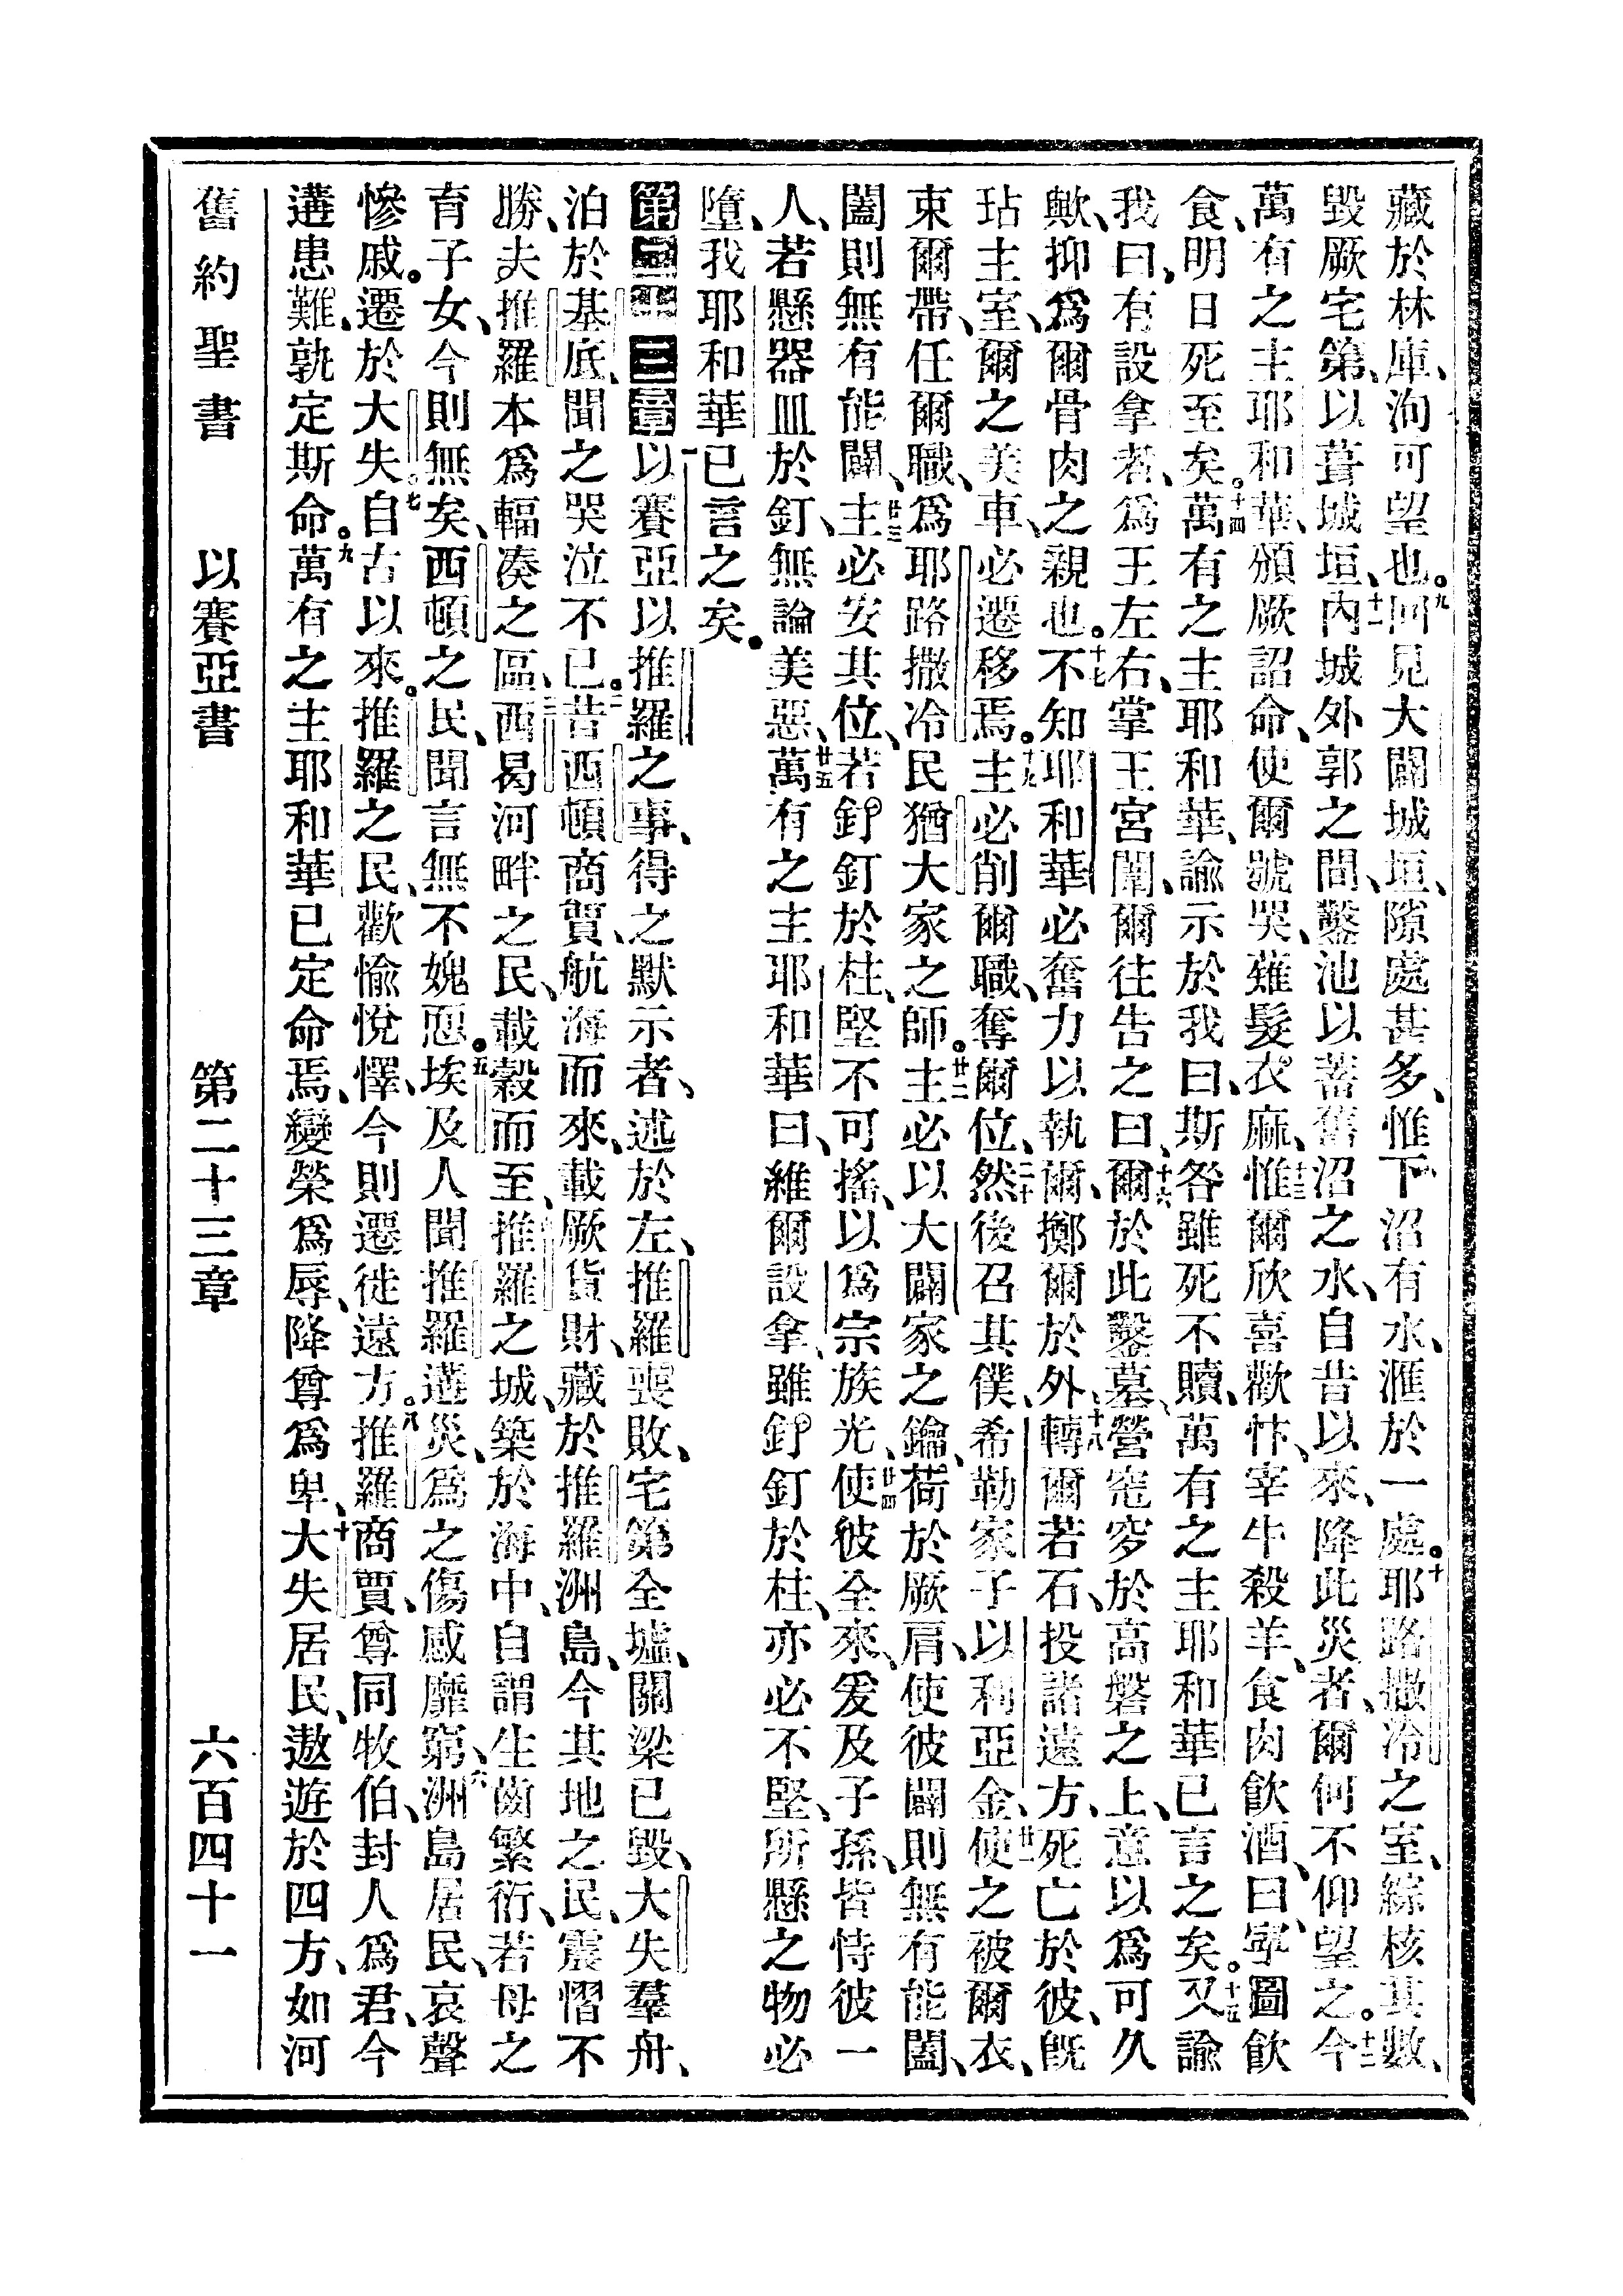 藏於林庫、洵可望也。九回見大闢城垣、隙處甚多、惟下沼有水、滙於一處。十耶路撒冷之室、綜核其數、
毀厥宅第、以葺城垣、十一內城外郭之間、鑿池以蓄舊沼之水、自昔以來、降此災者、爾何不仰望之。十二今
萬有之主耶和華、頒厥詔命、使爾號哭、薙髮衣麻、十三惟爾欣喜歡忭、宰牛殺羊、食肉飲酒、曰、寧圖飲
食、明日死至矣。十四萬有之主耶和華、諭示於我曰、斯咎雖死不贖、萬有之主耶和華已言之矣。十五又諭
我曰、有設拿者、爲王左右、掌王宮闈、爾往告之曰、十六爾於此鑿墓、營窀穸於高磐之上、意以爲可久
歟、抑爲爾骨肉之親也。十七不知耶和華必奮力以執爾、擲爾於外、十八轉爾若石、投諸遠方、死亡於彼、既
玷主室、爾之美車、必遷移焉。十九主必削爾職、奪爾位、二十然後召其僕、希勒家子以利亞金、廿一使之被爾衣、
束爾帶、任爾職、爲耶路撒冷民猶大家之師。廿二主必以大闢家之鑰、荷於厥肩、使彼闢則無有能闔、
闔則無有能闢、廿三主必安其位、若釘釘於柱、堅不可搖、以爲宗族光、廿四使彼全來、爰及子孫、皆恃彼一
人、若懸器皿於釘、無論美惡、廿五萬有之主耶和華曰、維爾設拿、雖釘釘於柱、亦必不堅、所懸之物必
墮、我耶和華已言之矣。
第二十三章一以賽亞以推羅之事、得之默示者、述於左、推羅喪敗、宅第全墟、關梁已毀、大失羣舟、
泊於基底、聞之哭泣不已。二昔西頓商賈、航海而來、載厥貨財、藏於推羅洲島、今其地之民、震慴不
勝、夫推羅本爲輻凑之區、三西曷河畔之民、載穀而至、推羅之城、築於海中、自謂生齒繁衍、若母之
育子女、今則無矣、西頓之民、聞言無不媿恧。五埃及人聞推羅遘災、爲之傷感靡窮、六洲島居民、哀聲
慘戚。遷於大失。七自古以來。推羅之民、歡愉悅懌、今則遷徙遠方。八推羅商賈、尊同牧伯、封人爲君、今
遘患難、孰定斯命。九萬有之主耶和華已定命焉、變榮爲辱、降尊爲卑、十大失居民、遨遊於四方、如河
舊約聖書　以賽亞書　第二十三章　六百四十一